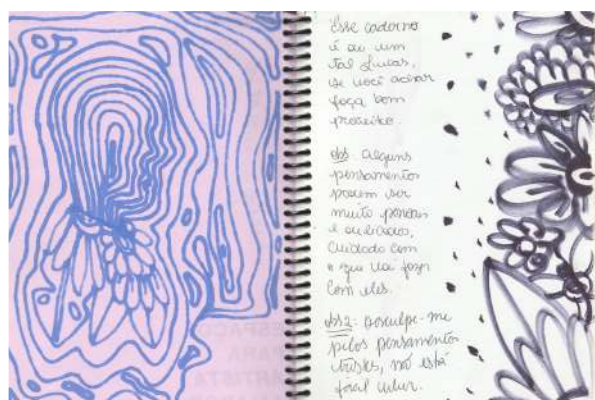 Esse caderno
é de um
tal Lucas,
se você achar
faça bom
proveito.
obs: Alguns
pensamentos
podem ser
muito
e
cuidado com
o que vai fazer
com eles.
obs2: Desculpe-me
pelos pensamentos
tristes, não está
fácil viver.
ESPAÇO
PARA
ARTISTA